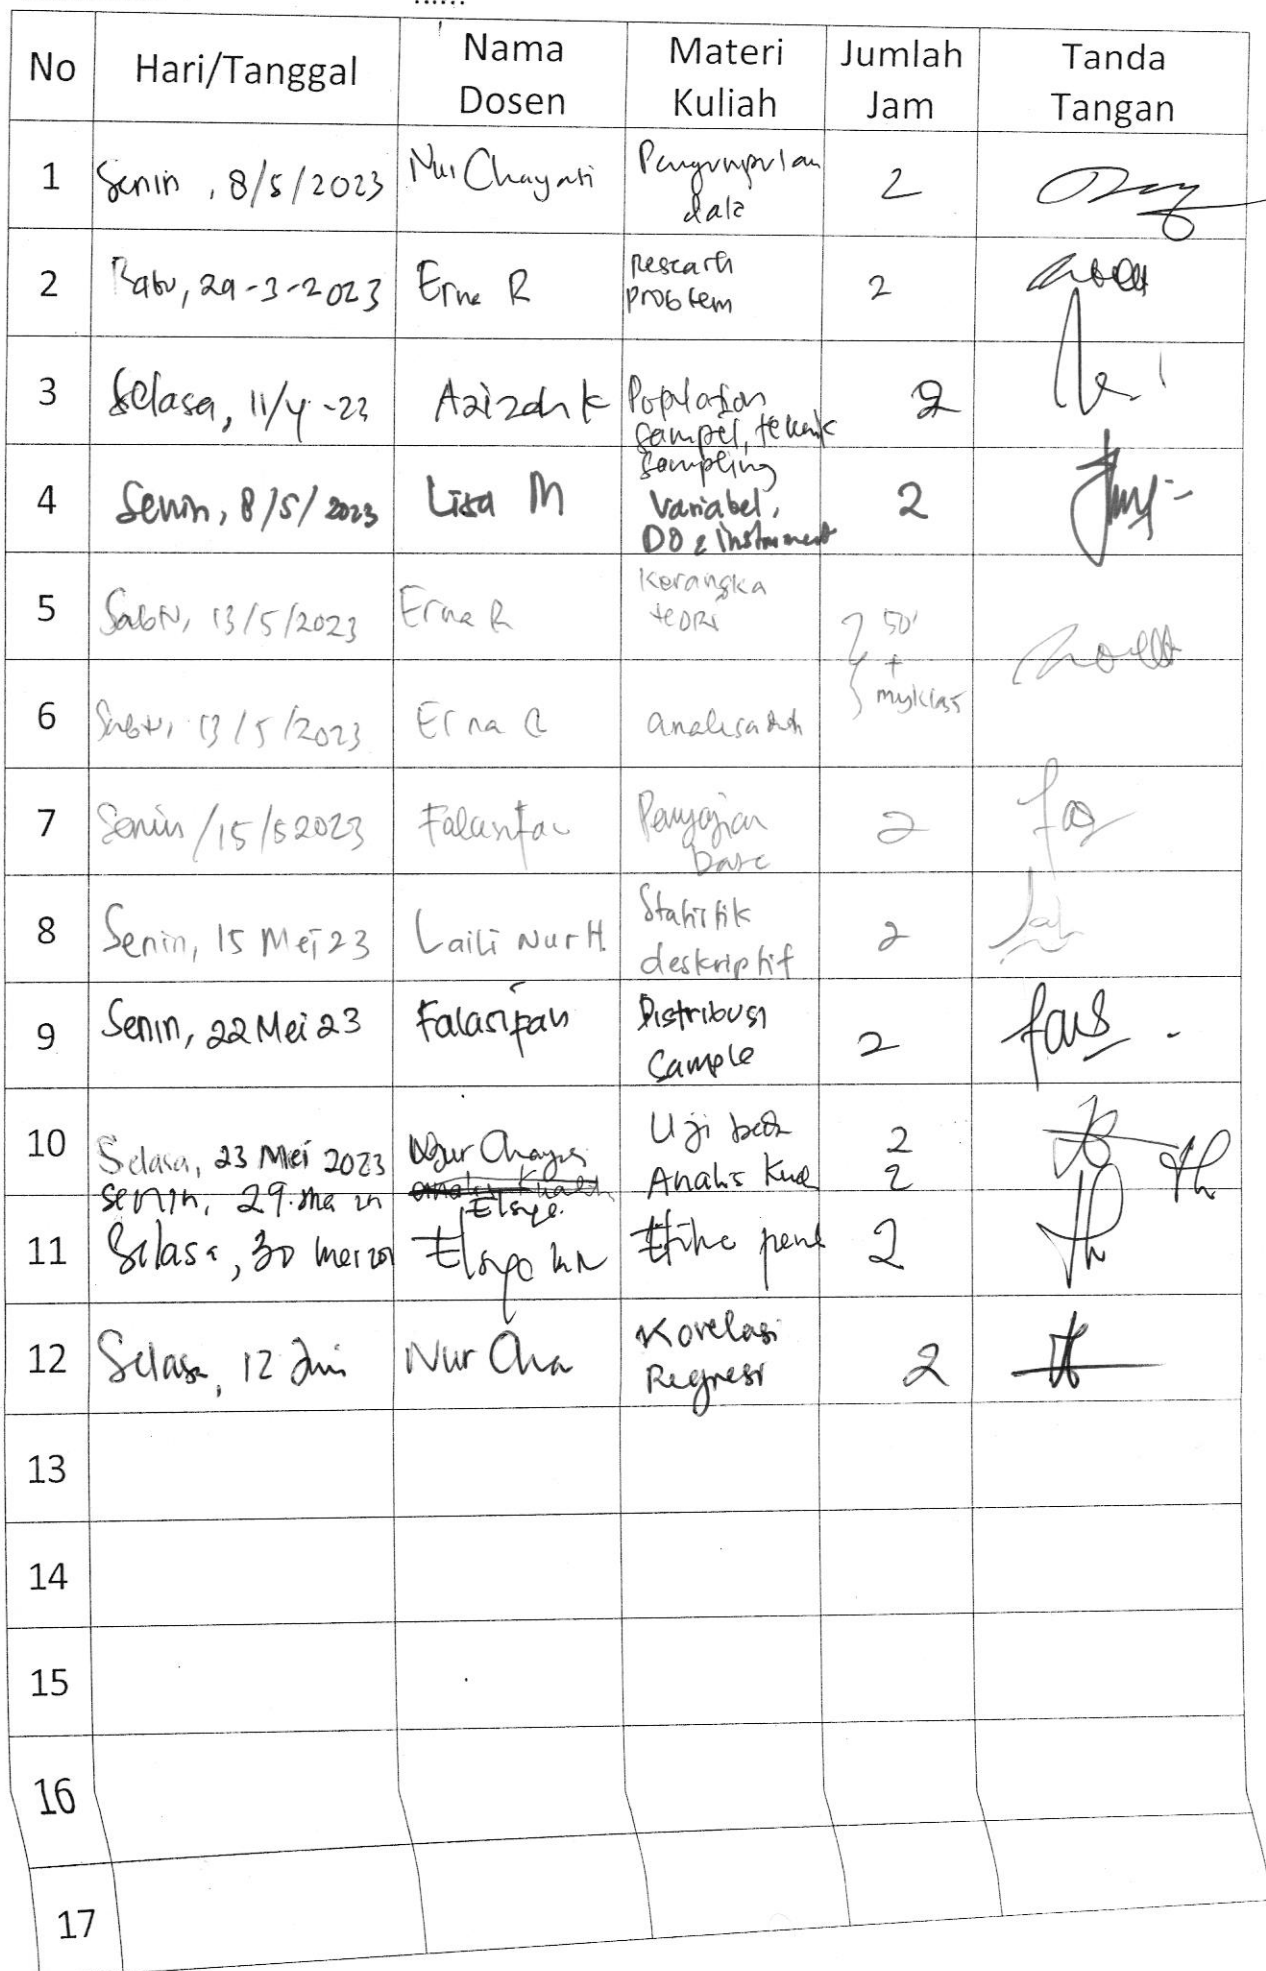 No Hari/Tanggal Nama Dosen Materi Kuliah Jumlah Jam Tanda Tangan
1 Senin, 8/5/2023 Nur Chayati Pengumpulan data 2
2 Rabu, 29-3-2023 Erna R Research problem 2
3 Selasa, 11/4-23 Azizah K Population sampel, teknik sampling 2
4 Senin, 8/5/2023 Lisa M Variabel, DO & instrument 2
5 Sabtu, 13/5/2023 Erna R Kerangka teori 50' +
6 Sabtu, 13/5/2023 Erna R analisa myklas
7 Senin/15/5 2023 Falasifah Penyajian Data 2
8 Senin, 15 Mei 23 Laili Nur H. Statistik deskriptif 2
9 Senin, 22 Mei 23 Falasifah Distribusi Sample 2
10 Selasa, 23 Mei 2023 Nur Chaya Uji beda 2
Senin, 29 Elsye Analis Kual 2
11 Selasa, 30 Mei Elsye Etika penel 2
12 Selasa, 12 Juni Nur Cha Korelasi Regresi 2
13
14
15
16
17